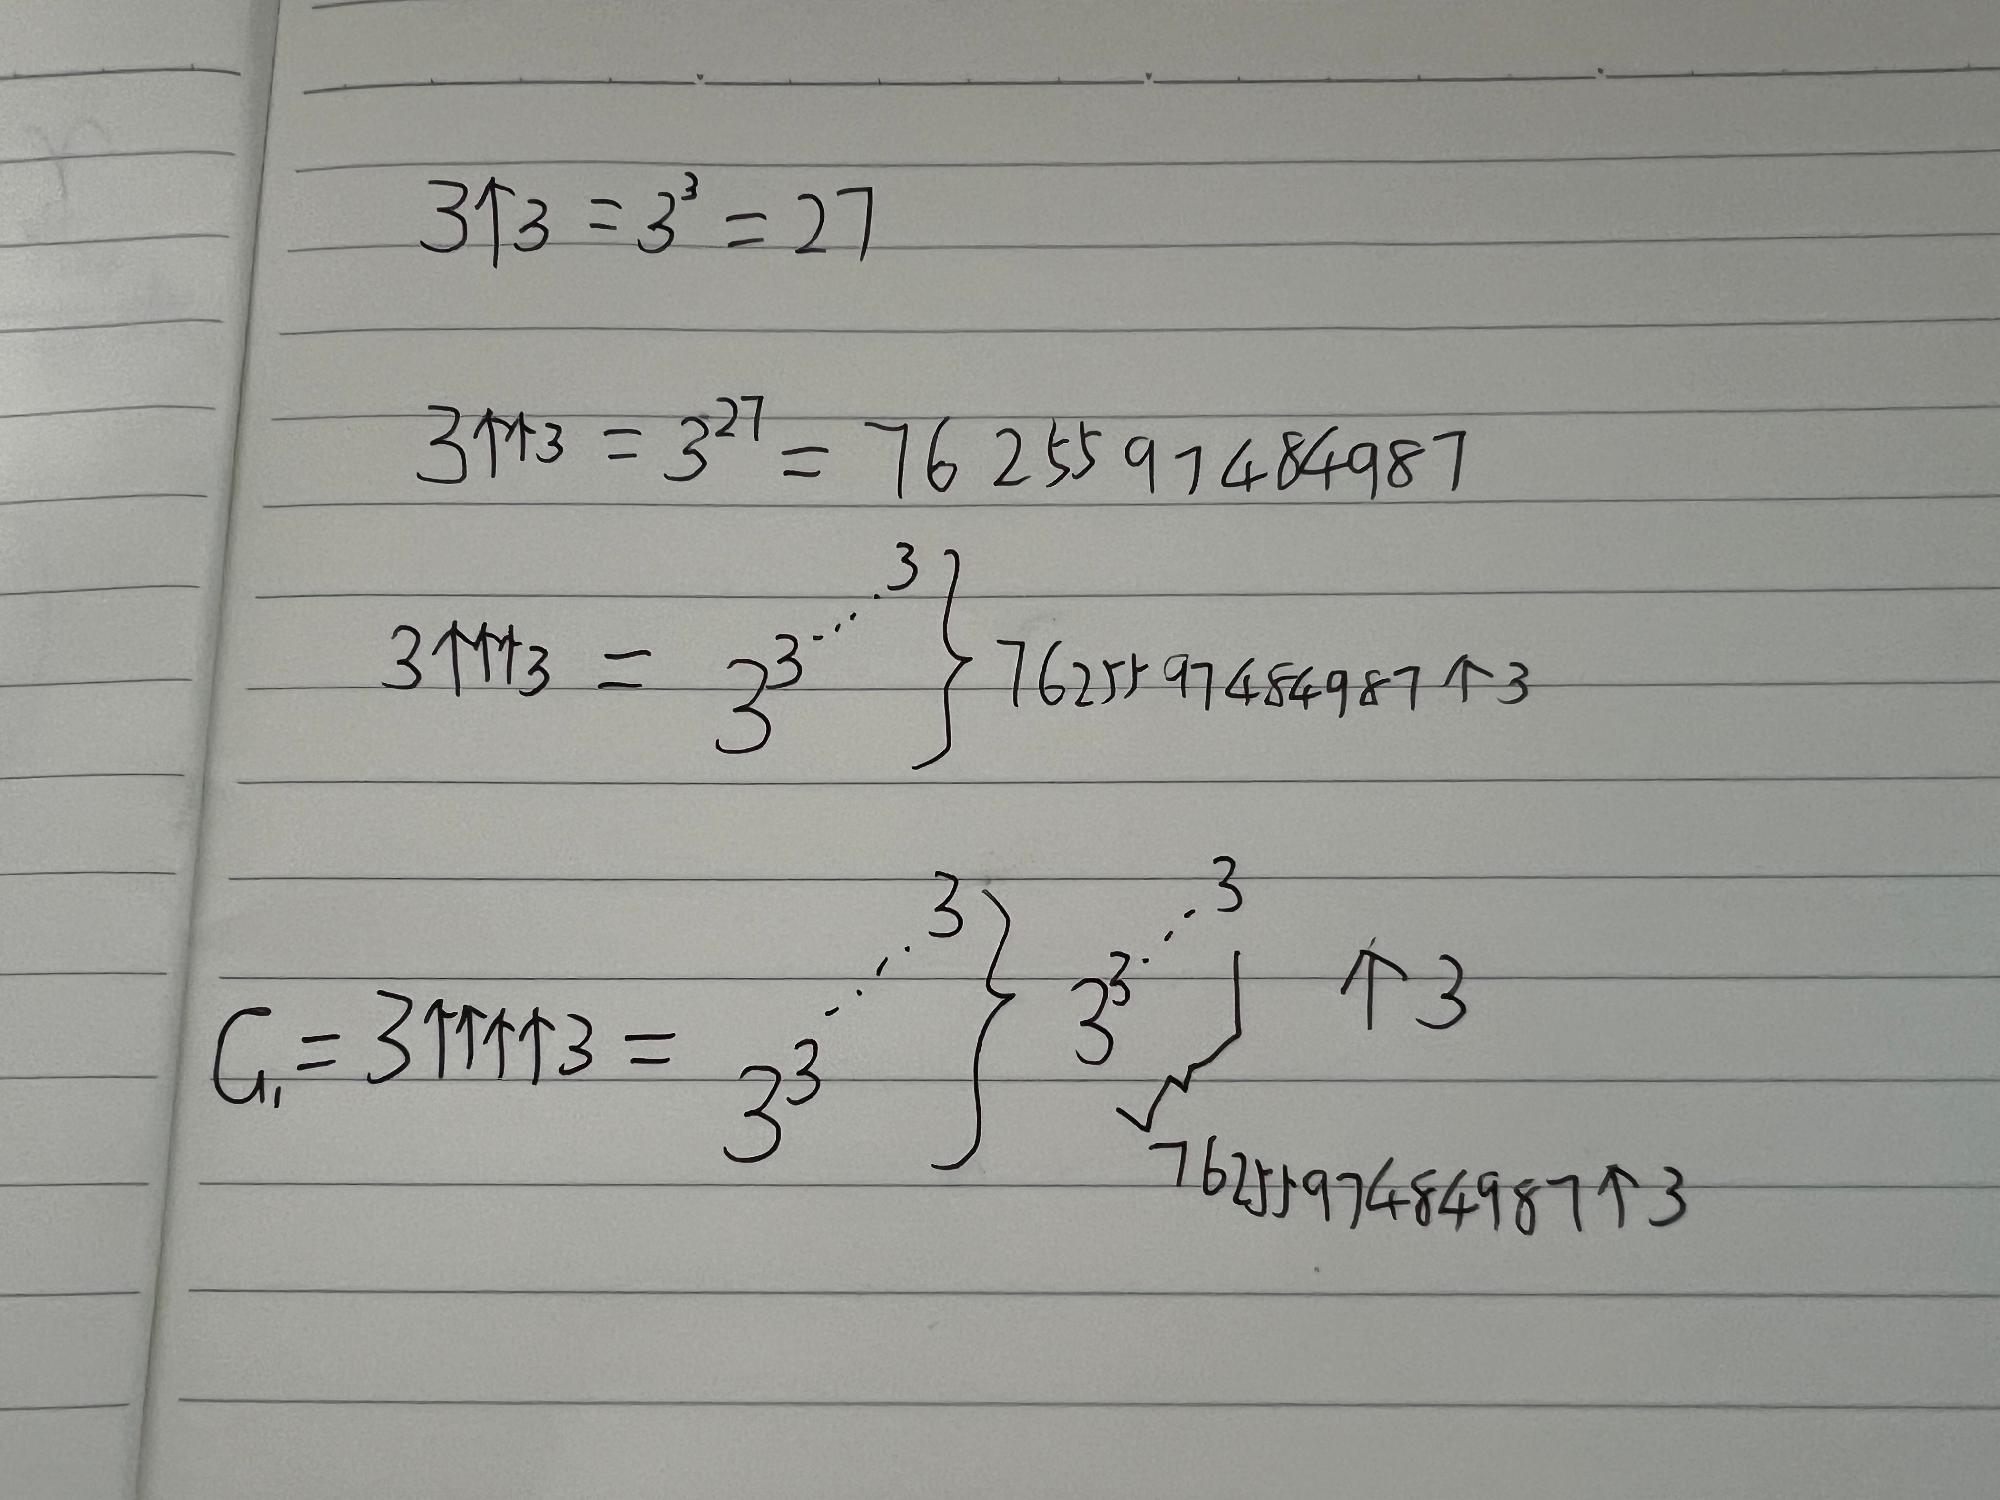 3↑3 = 3³ = 27
3↑↑3 = 3²⁷ = 7625597484987
3↑↑↑3 = 3^3^⋰^3 } 7625597484987↑3
G₁ = 3↑↑↑↑3 = 3^3^⋰^3 } 3^3^⋰^3 ↑3
7625597484987↑3